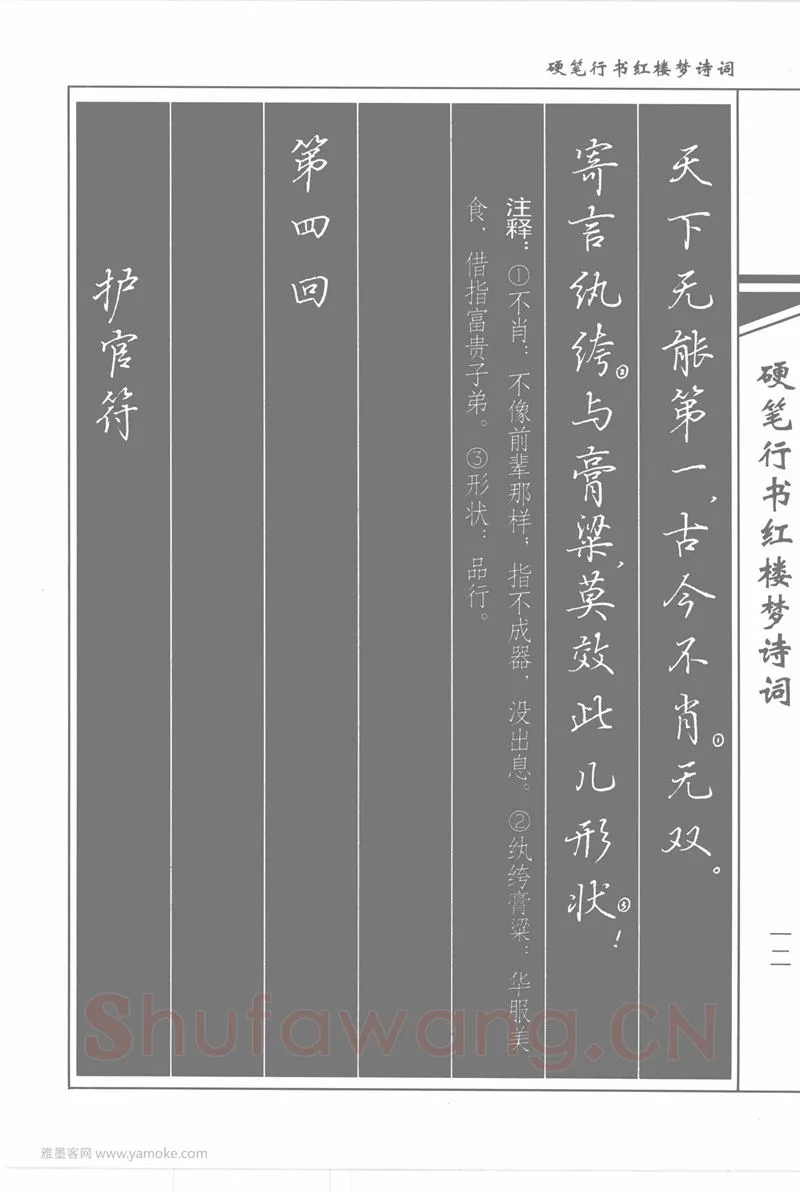 硬笔行书红楼梦诗词
天下无能第一，古今不肖①无双。
寄言纨绔②与膏粱，莫效此儿形状③！
注释：①不肖：不像前辈那样；指不成器，没出息。②纨绔膏粱：华服美
食，借指富贵子弟。③形状：品行。
第四回
护官符
硬笔行书红楼梦诗词
一二
Shufawang.CN
雅墨客网 www.yamoke.com